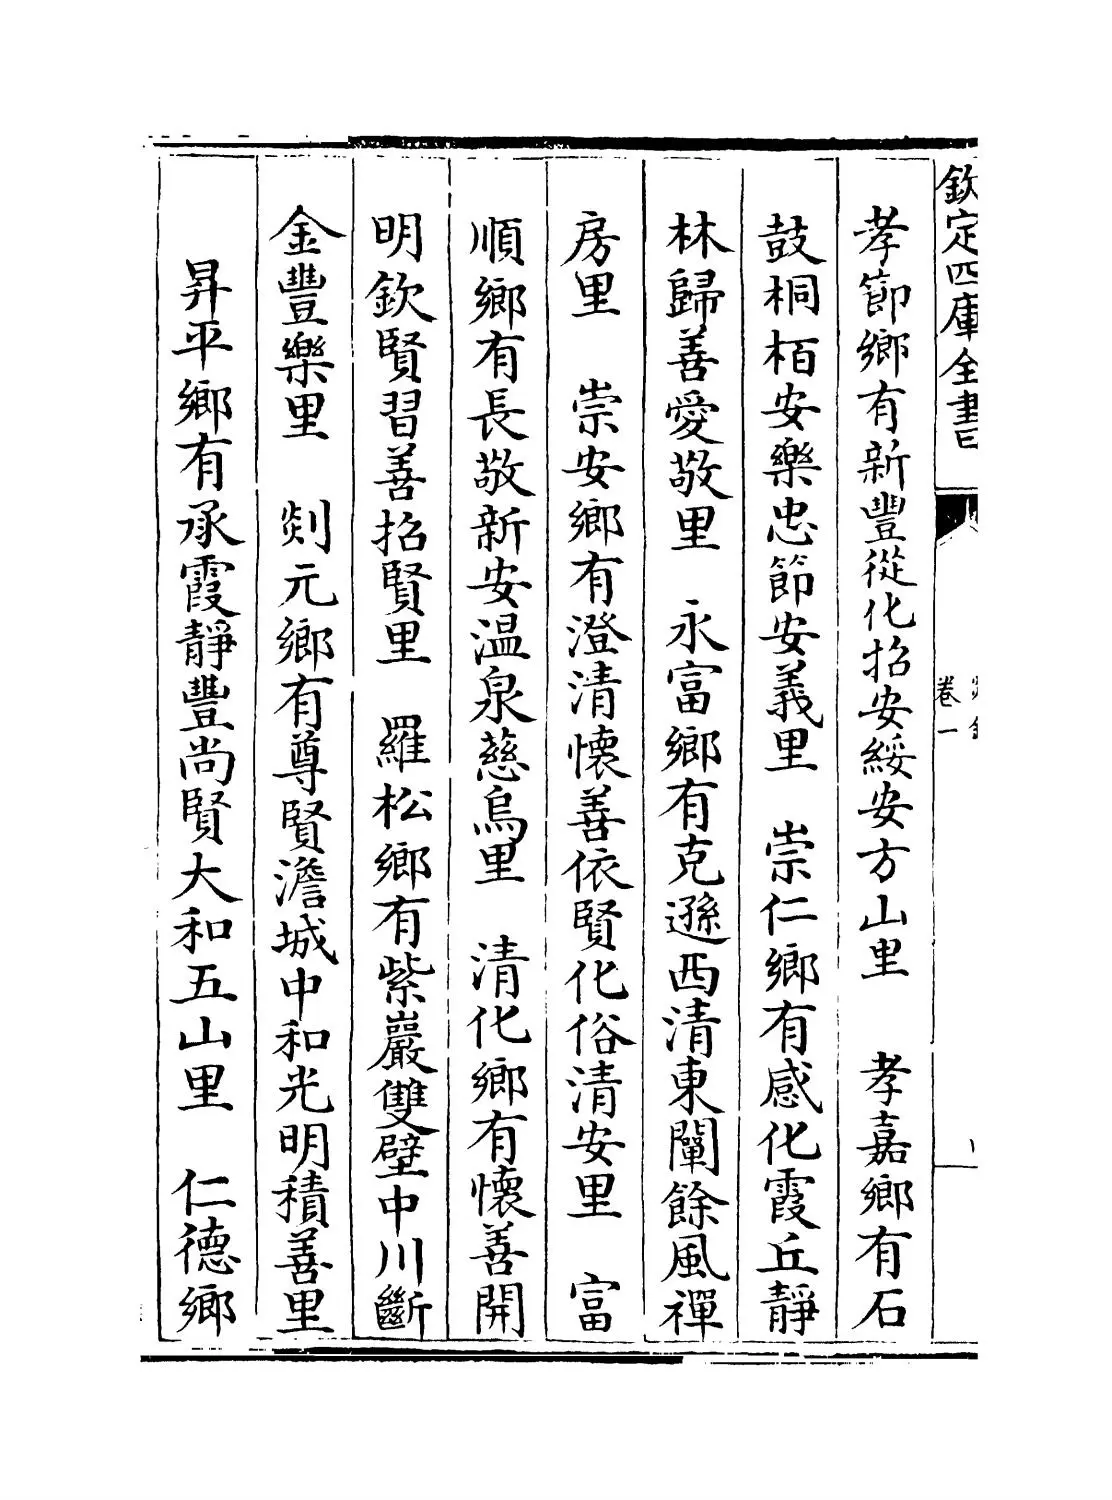 欽定四庫全書
卷一
孝節鄉有新豐從化招安綏安方山里　孝嘉鄉有石
鼓桐栢安樂忠節安義里　崇仁鄉有感化霞丘靜
林歸善愛敬里　永富鄉有克遜西清東闡餘風禪
房里　崇安鄉有澄清懷善依賢化俗清安里　富
順鄉有長敬新安温泉慈烏里　清化鄉有懷善開
明欽賢習善招賢里　羅松鄉有紫巖雙壁中川斷
金豐樂里　剡元鄉有尊賢澹城中和光明積善里
昇平鄉有承霞靜豐尚賢大和五山里　仁德鄉